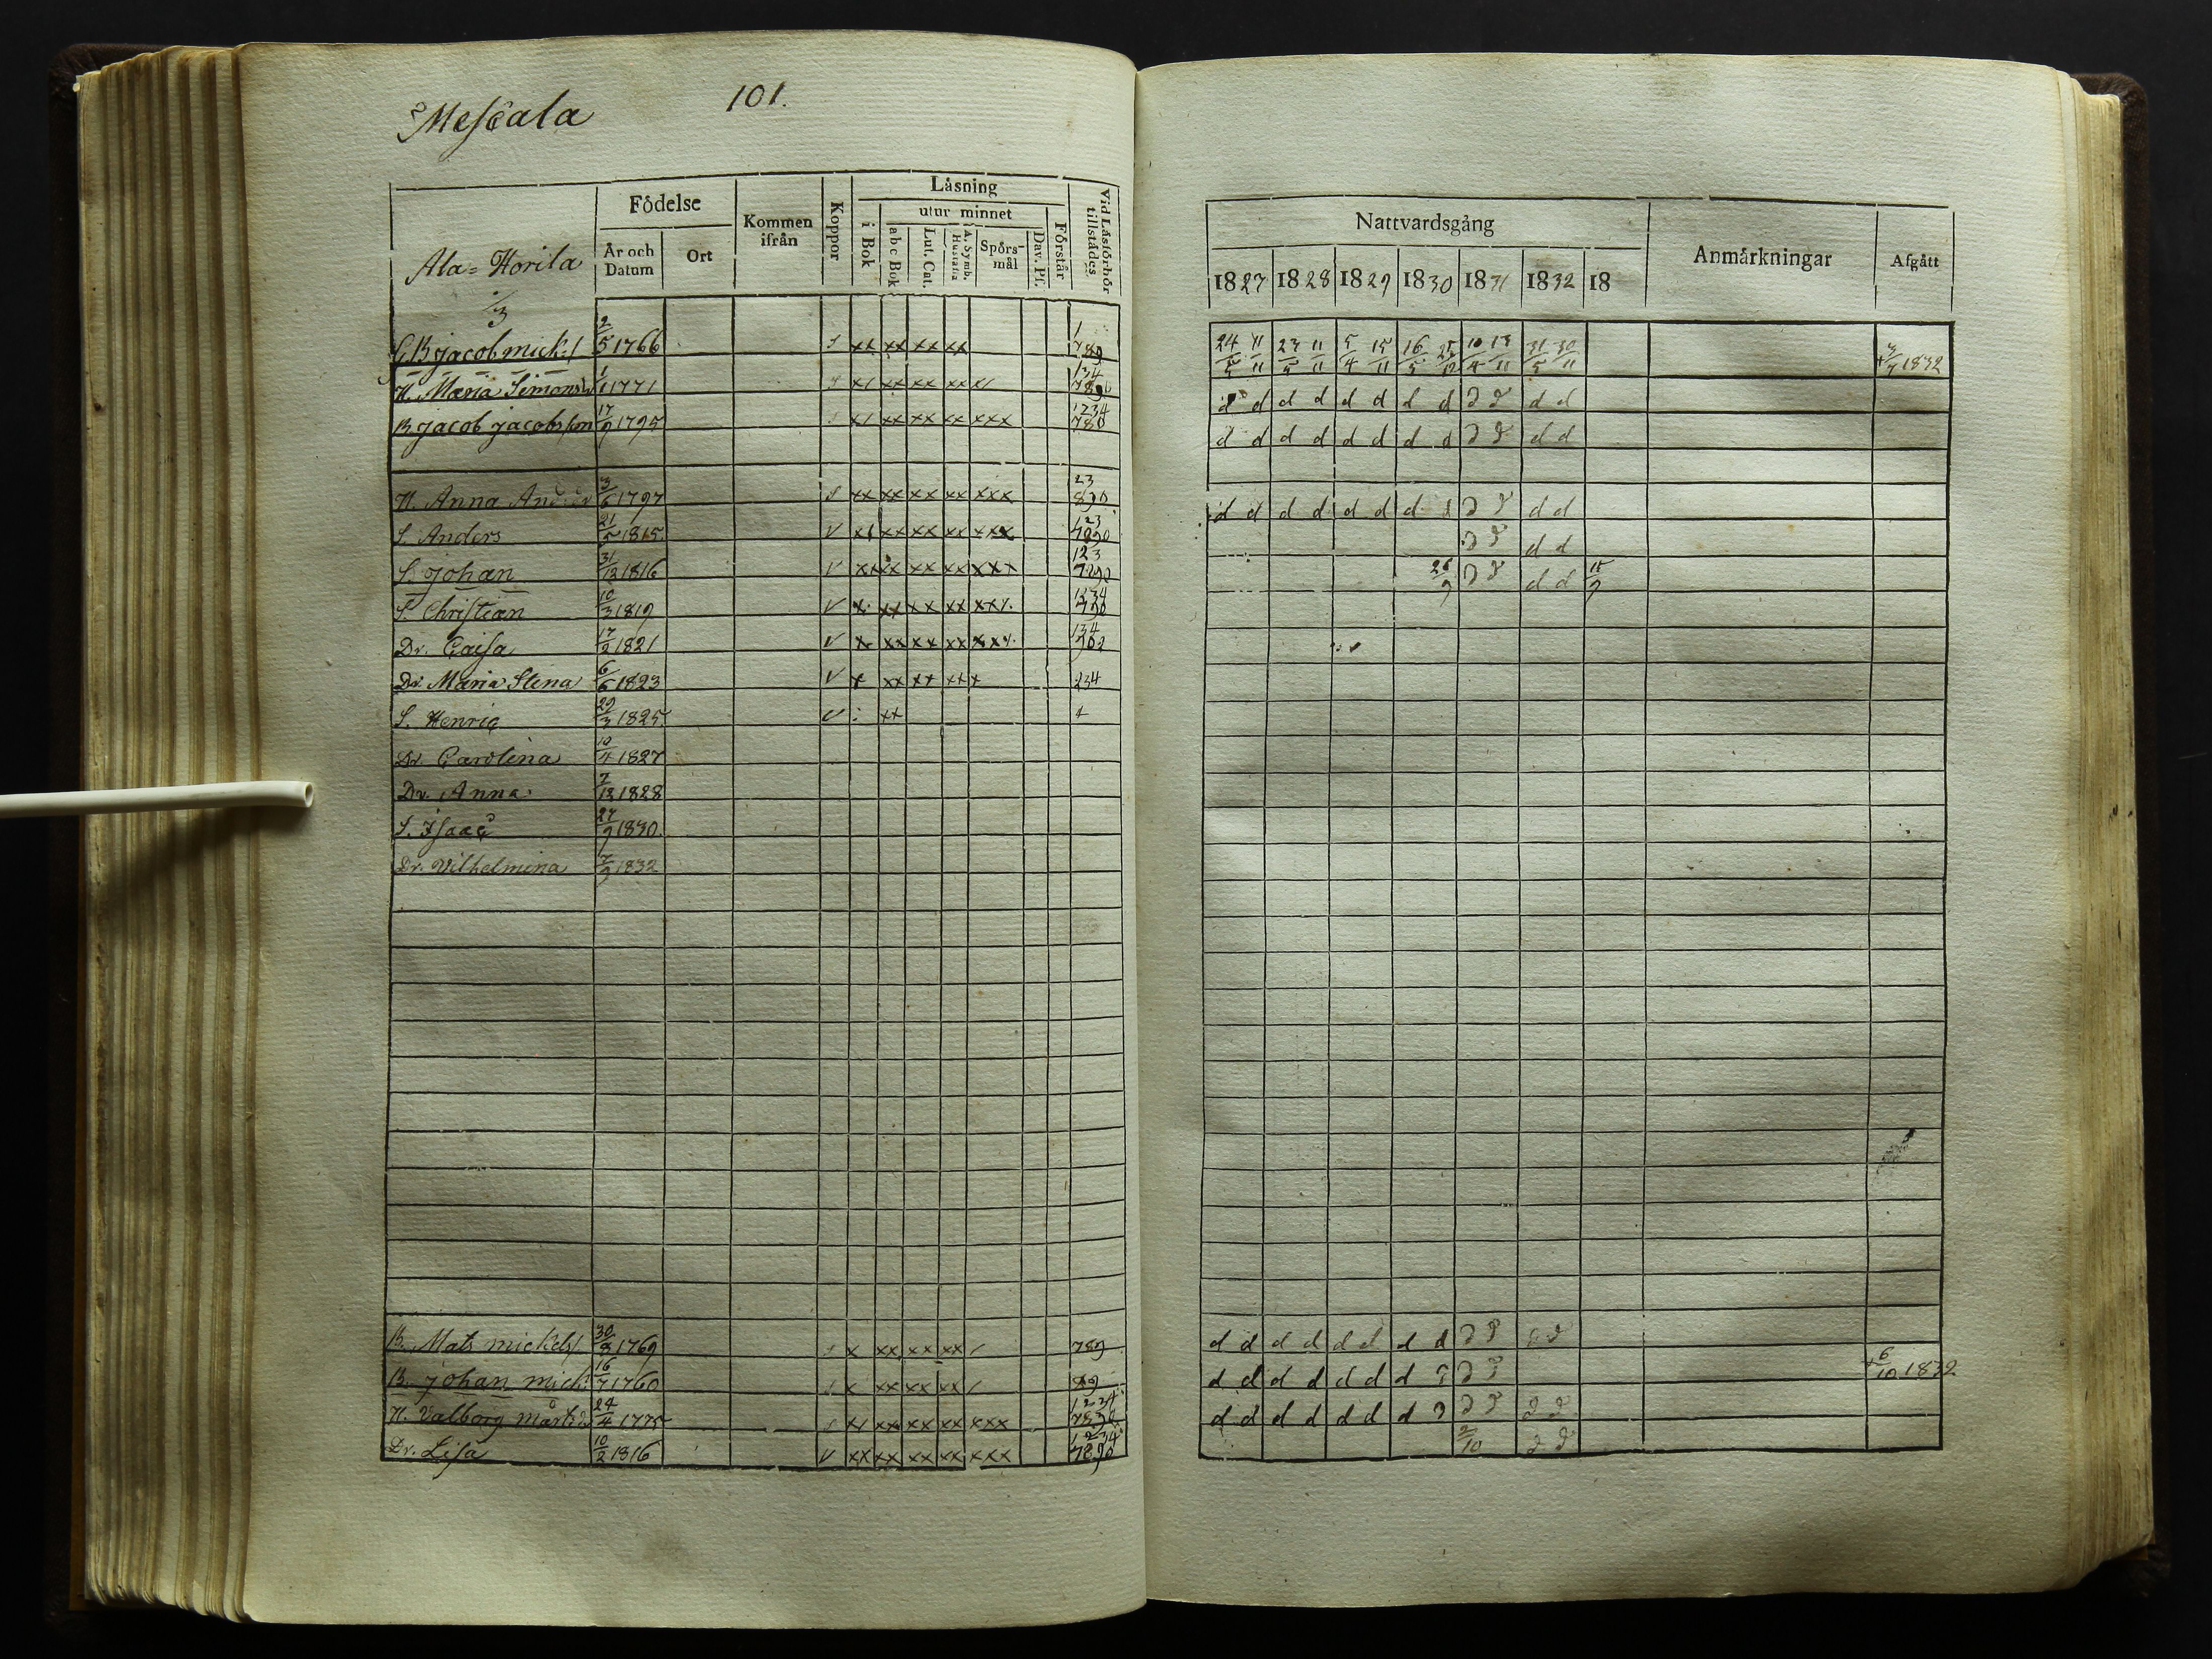 Mescala 101.
Ala-Horila
3
Födelse
År och Datum
Ort
Kommen ifrån
Koppor
Läsning
i Bok
utur minnet
abc Bok
Lut. Cat.
A. Symb. Hustafla
Spörsmål
Dav. Ps.
Förstår
Vid Läsförhör tillstädes
Nattvardsgång
1827 1828 1829 1830 1831 1832 18
Anmärkningar
Afgått
B Jacob mick:s 2/5 1766 xx xx xx xx 1 789 24/5 11/11 23/5 11/11 5/4 15/11 16/5 25/12 10/4 13/11 31/5 30/11 + 3/7 1832
H. Maria Simonsd 1/1 1771 x/ xx xx xx x/ 134 d d d d d d d d d d d d
B Jacob Jacobsson 17/9 1795 x/ xx xx xx xxx 1234 780 d d d d d d d d d d d d
H. Anna 3/6 1797 xx xx xx xx xxx 23 890 d d d d d d d d d d d d
S. Anders 21/5 1815 v x/ xx xx xx xxx 123 7890 d d d d
S. Johan 31/12 1816 v xx xx xx xx xxx 123 7890 26/9 d d d d 15/9
S. Christian 10/3 1819 v x. xx xx xx xx/. 1234 790
Dr. Caisa 17/2 1821 v x xx xx xx xx/. 134
Dr. Maria Stina 6/6 1823 v x xx xx xx x 234
S. Henric 29/3 1825 v : xx 4
Dr. Carolina 10/4 1827
Dr. Anna 7/12 1828
S. Isaac 27/9 1830.
Dr. Vilhelmina 7/9 1832
B. Mats mickels 30/8 1769 x xx xx xx / 789 d d d d d d d d d d d d
B. Johan mick: 16/7 1760 x xx xx xx / 89 d d d d d d d d d d + 6/10 1832
H. Valborg mårtsd 24/4 1775 x/ xx xx xx xxx 1234 7890 d d d d d d d d d d d d
Dr. Lisa 10/2 1816 v xx xx xx xx xxx 1234 7890 2/10 d d